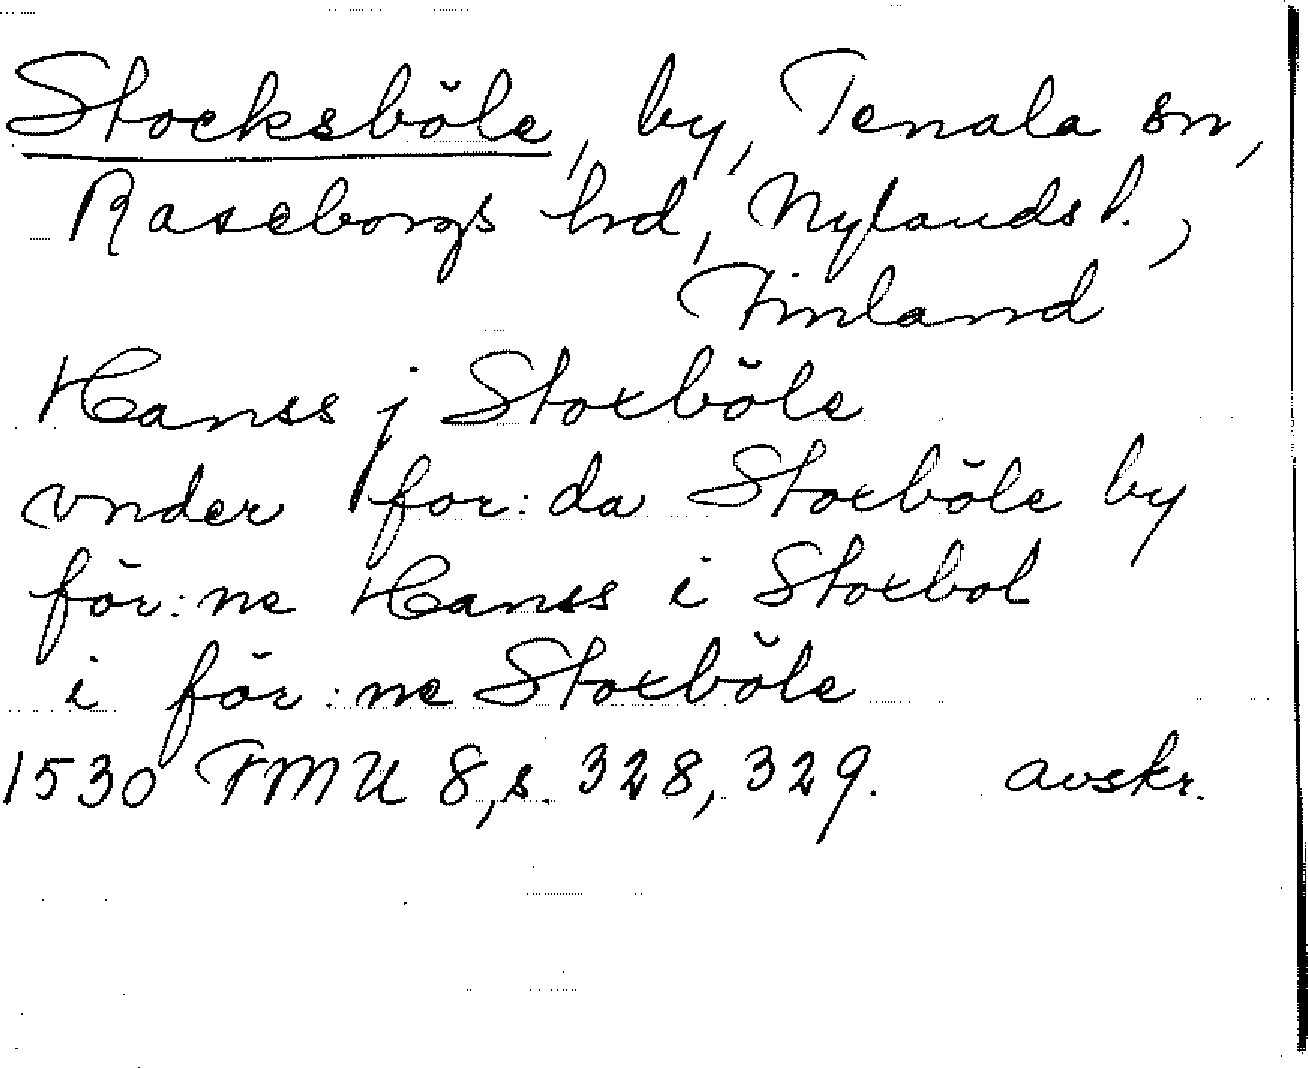 Stocksböle, by, Tenala sn,
Raseborgs hrd, Nylands l.,
Finland
Hanss j Stoxböle
vnder for:da Stoxböle by
för:ne Hanss i Stoxbol
i för:ne Stoxböle
1530 FMU 8, s. 328, 329. avskr.